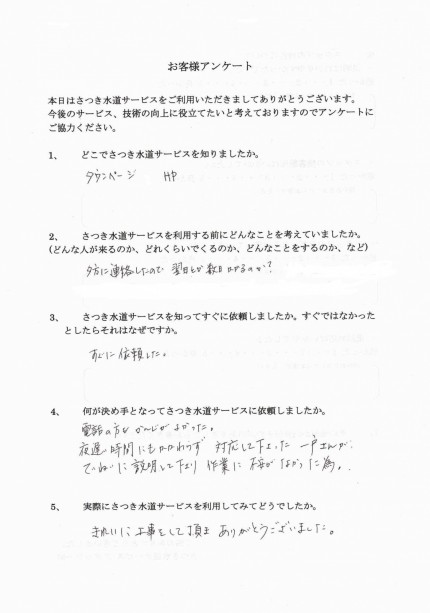 お客様アンケート
本日はさつき水道サービスをご利用いただきましてありがとうございます。
今後のサービス、技術の向上に役立てたいと考えておりますのでアンケートに
ご協力ください。
1、 どこでさつき水道サービスを知りましたか。
タウンページ HP
2、 さつき水道サービスを利用する前にどんなことを考えていましたか。
(どんな人が来るのか、どれくらいでくるのか、どんなことをするのか、など)
夕方に連絡したので 翌日とか数日かかるのか?
3、 さつき水道サービスを知ってすぐに依頼しましたか。すぐではなかった
としたらそれはなぜですか。
すぐに依頼した。
4、 何が決め手となってさつき水道サービスに依頼しましたか。
電話の方もかんじがよかった。
夜遅い時間にもかかわらず 対応して下さった 一戸さんが
ていねいに説明して下さり 作業に がなかった為。
5、 実際にさつき水道サービスを利用してみてどうでしたか。
きれいに工事をして頂き ありがとうございました。